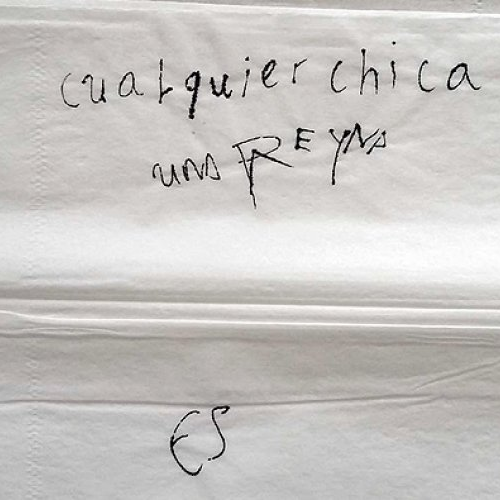 cualquier chica
una REYNA
ES